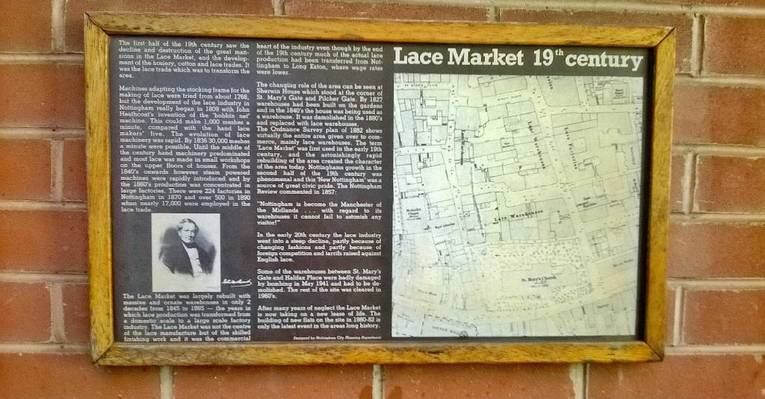 The first half of the 19th century saw the
decline and destruction of the great man-
sions in the Lace Market, and the develop-
ment of the hosiery, cotton and lace trades. It
was the lace trade which was to transform the
area.
Machines adapting the stocking frame for the
making of lace were tried from about 1768,
but the development of the lace industry in
Nottingham really began in 1809 with John
Heathcoat's invention of the 'bobbin net'
machine. This could make 1,000 meshes a
minute, compared with the hand lace
makers' five. The evolution of lace
machinery was rapid. By 1836 30,000 meshes
a minute were possible. Until the middle of
the century hand machinery predominated
and most lace was made in small workshops
on the upper floors of houses. From the
1840's onwards however steam powered
machines were rapidly introduced and by
the 1860's production was concentrated in
large factories. There were 224 factories in
Nottingham in 1870 and over 500 in 1890
when nearly 17,000 were employed in the
lace trade.
The Lace Market was largely rebuilt with
massive and ornate warehouses in only 2
decades from 1845 to 1865 — the years in
which lace production was transformed from
a domestic scale to a large scale factory
industry. The Lace Market was not the centre
of the lace manufacture but of the skilled
finishing work and it was the commercial
heart of the industry even though by the end
of the 19th century much of the actual lace
production had been transferred from Not-
tingham to Long Eaton, where wage rates
were lower.
The changing role of the area can be seen at
Sherwin House which stood at the corner of
St. Mary's Gate and Pilcher Gate. By 1827
warehouses had been built on the gardens
and in the 1840's the house was being used as
a warehouse. It was demolished in the 1880's
and replaced with lace warehouses.
The Ordnance Survey plan of 1882 shows
virtually the entire area given over to com-
merce, mainly lace warehouses. The term
'Lace Market' was first used in the early 19th
century, and the astonishingly rapid
rebuilding of the area created the character
of the area today. Nottinghams growth in the
second half of the 19th century was
phenomenal and this 'New Nottingham' was a
source of great civic pride. The Nottingham
Review commented in 1857:
"Nottingham is become the Manchester of
the Midlands . . . with regard to its
warehouses it cannot fail to astonish any
visitor!"
In the early 20th century the lace industry
went into a steep decline, partly because of
changing fashions and partly because of
foreign competition and tariffs raised against
English lace.
Some of the warehouses between St. Mary's
Gate and Halifax Place were badly damaged
by bombing in May 1941 and had to be de-
molished. The rest of the site was cleared in
1960's.
After many years of neglect the Lace Market
is now taking on a new lease of life. The
building of new flats on the site in 1980-82 is
only the latest event in the areas long history.
Designed by Nottingham City Planning Department
Lace Market 19th century
Lace Warehouses
St. Mary's Church